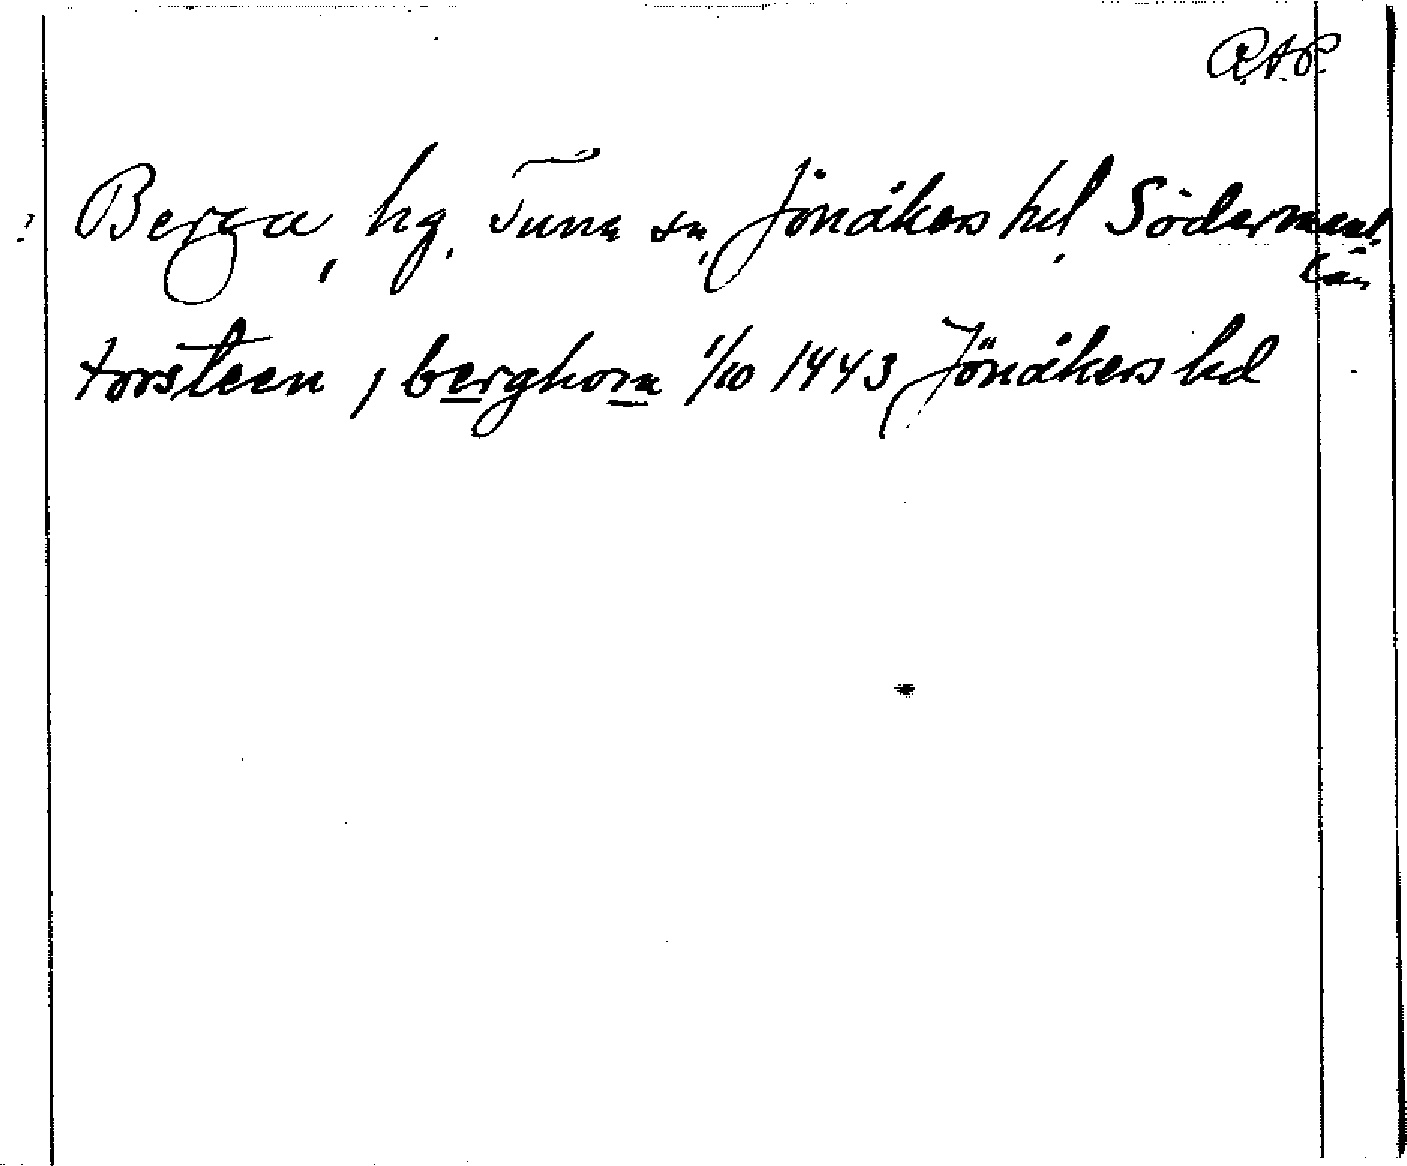 R.A.P.
? Berga, hg. Tuna sn, Jönåkers hd. Södermanl.
län
torsteen j berghom 1/10 1443 Jönåkers hd